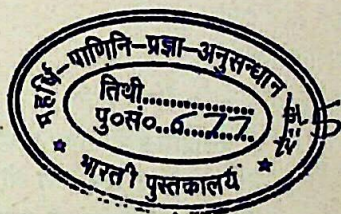 महर्षि-पाणिनि-प्रज्ञा-अनुसन्धान
तिथी..............
पु०सं०...677...
* भारती पुस्तकालय *